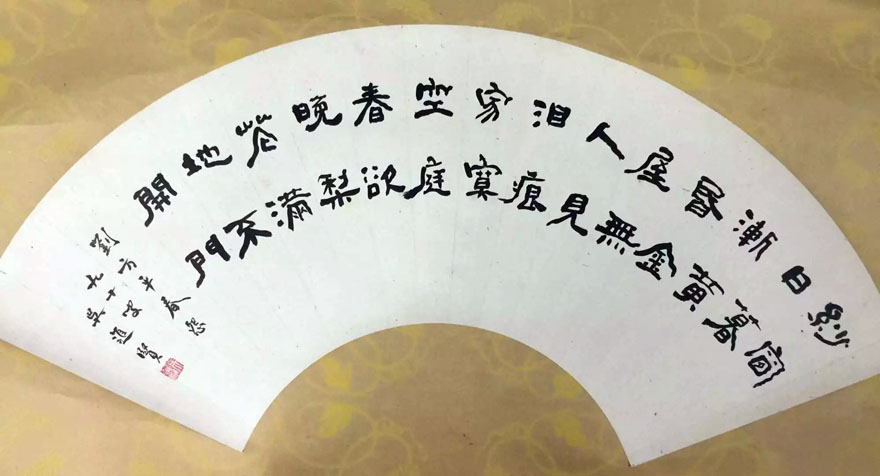 紗窗
日暮
漸黃
昏金
屋無
人見
泪痕
寂寞
空庭
春欲
晚梨
花滿
地不
開門
劉方平春怨
九十叟
吳道賢